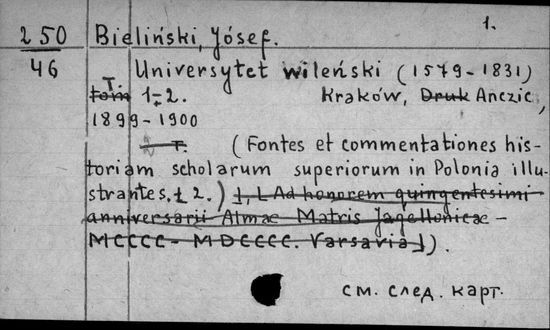 1.
250 Bieliński, Jósef.
46 Universytet wileński (1579-1831)
T. tom 1-2. Kraków, Druk Anczic,
1899-1900
T. (Fontes et commentationes his-
toriam scholarum superiorum in Polonia illu-
strantes, t 2.) 1, L Ad honorem quingentesimi
anniversarii Almae Matris Jagellonicae -
MCCCC - MDCCCC. Varsavia]).
см. след. карт.